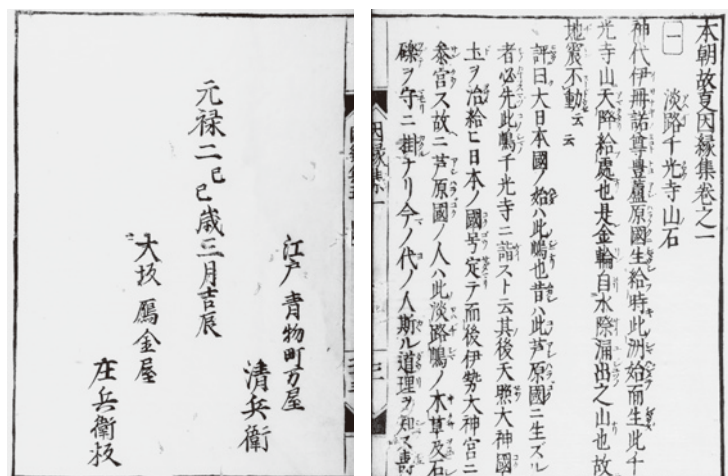 本朝故夏因縁集卷之一
一 淡路千光寺山石
神代伊弉諾尊豐蘆原國生給時此洲始而生此千
光寺山天降給處也是金輪自水際涌出之山也故
地震不動云云
評曰大日本國ノ始ハ此嶋也昔ハ此芦原國ニ生ズル
者必先此嶋千光寺ニ詣スト云其後天照大神國
土ヲ治給ヒ日本ノ國号定テ而後伊勢大神宮ニ
叅宮ス故ニ芦原國ノ人ハ此淡路嶋ノ木草及石
礫ヲ守ニ掛ナリ今ノ代ノ人斯ル道理ヲ知ス壽
因縁集一
元禄二己巳歳三月吉辰
江戸 青物町万屋
清兵衛
大坂 鴈金屋
庄兵衛板